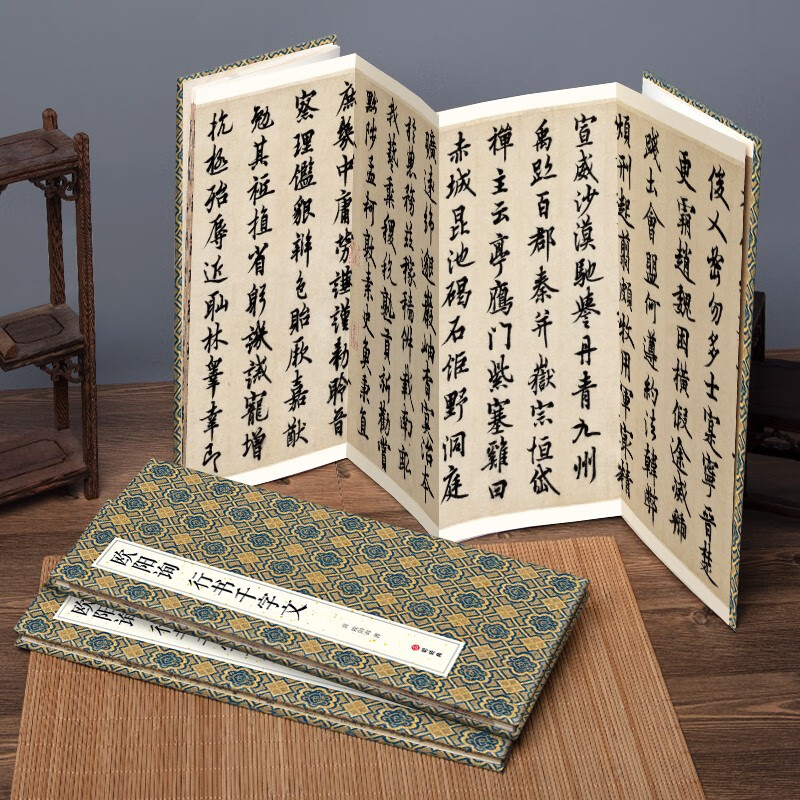 俊乂密勿多士寔寧晉楚
更霸趙魏困橫假途滅虢
踐土會盟何遵約法韓弊
煩刑起翦頗牧用軍最精
宣威沙漠馳譽丹青九州
禹跡百郡秦并嶽宗恒岱
禪主云亭鴈門紫塞雞田
赤城昆池碣石鉅野洞庭
曠遠綿邈巖岫杳冥治本
於農務茲稼穡俶載南畝
我藝黍稷稅熟貢新勸賞
黜陟孟軻敦素史魚秉直
庶幾中庸勞謙謹勅聆音
察理鑑貌辨色貽厥嘉猷
勉其祗植省躬譏誡寵增
抗極殆辱近恥林皋幸即
欧阳询 行书千字文
欧阳询